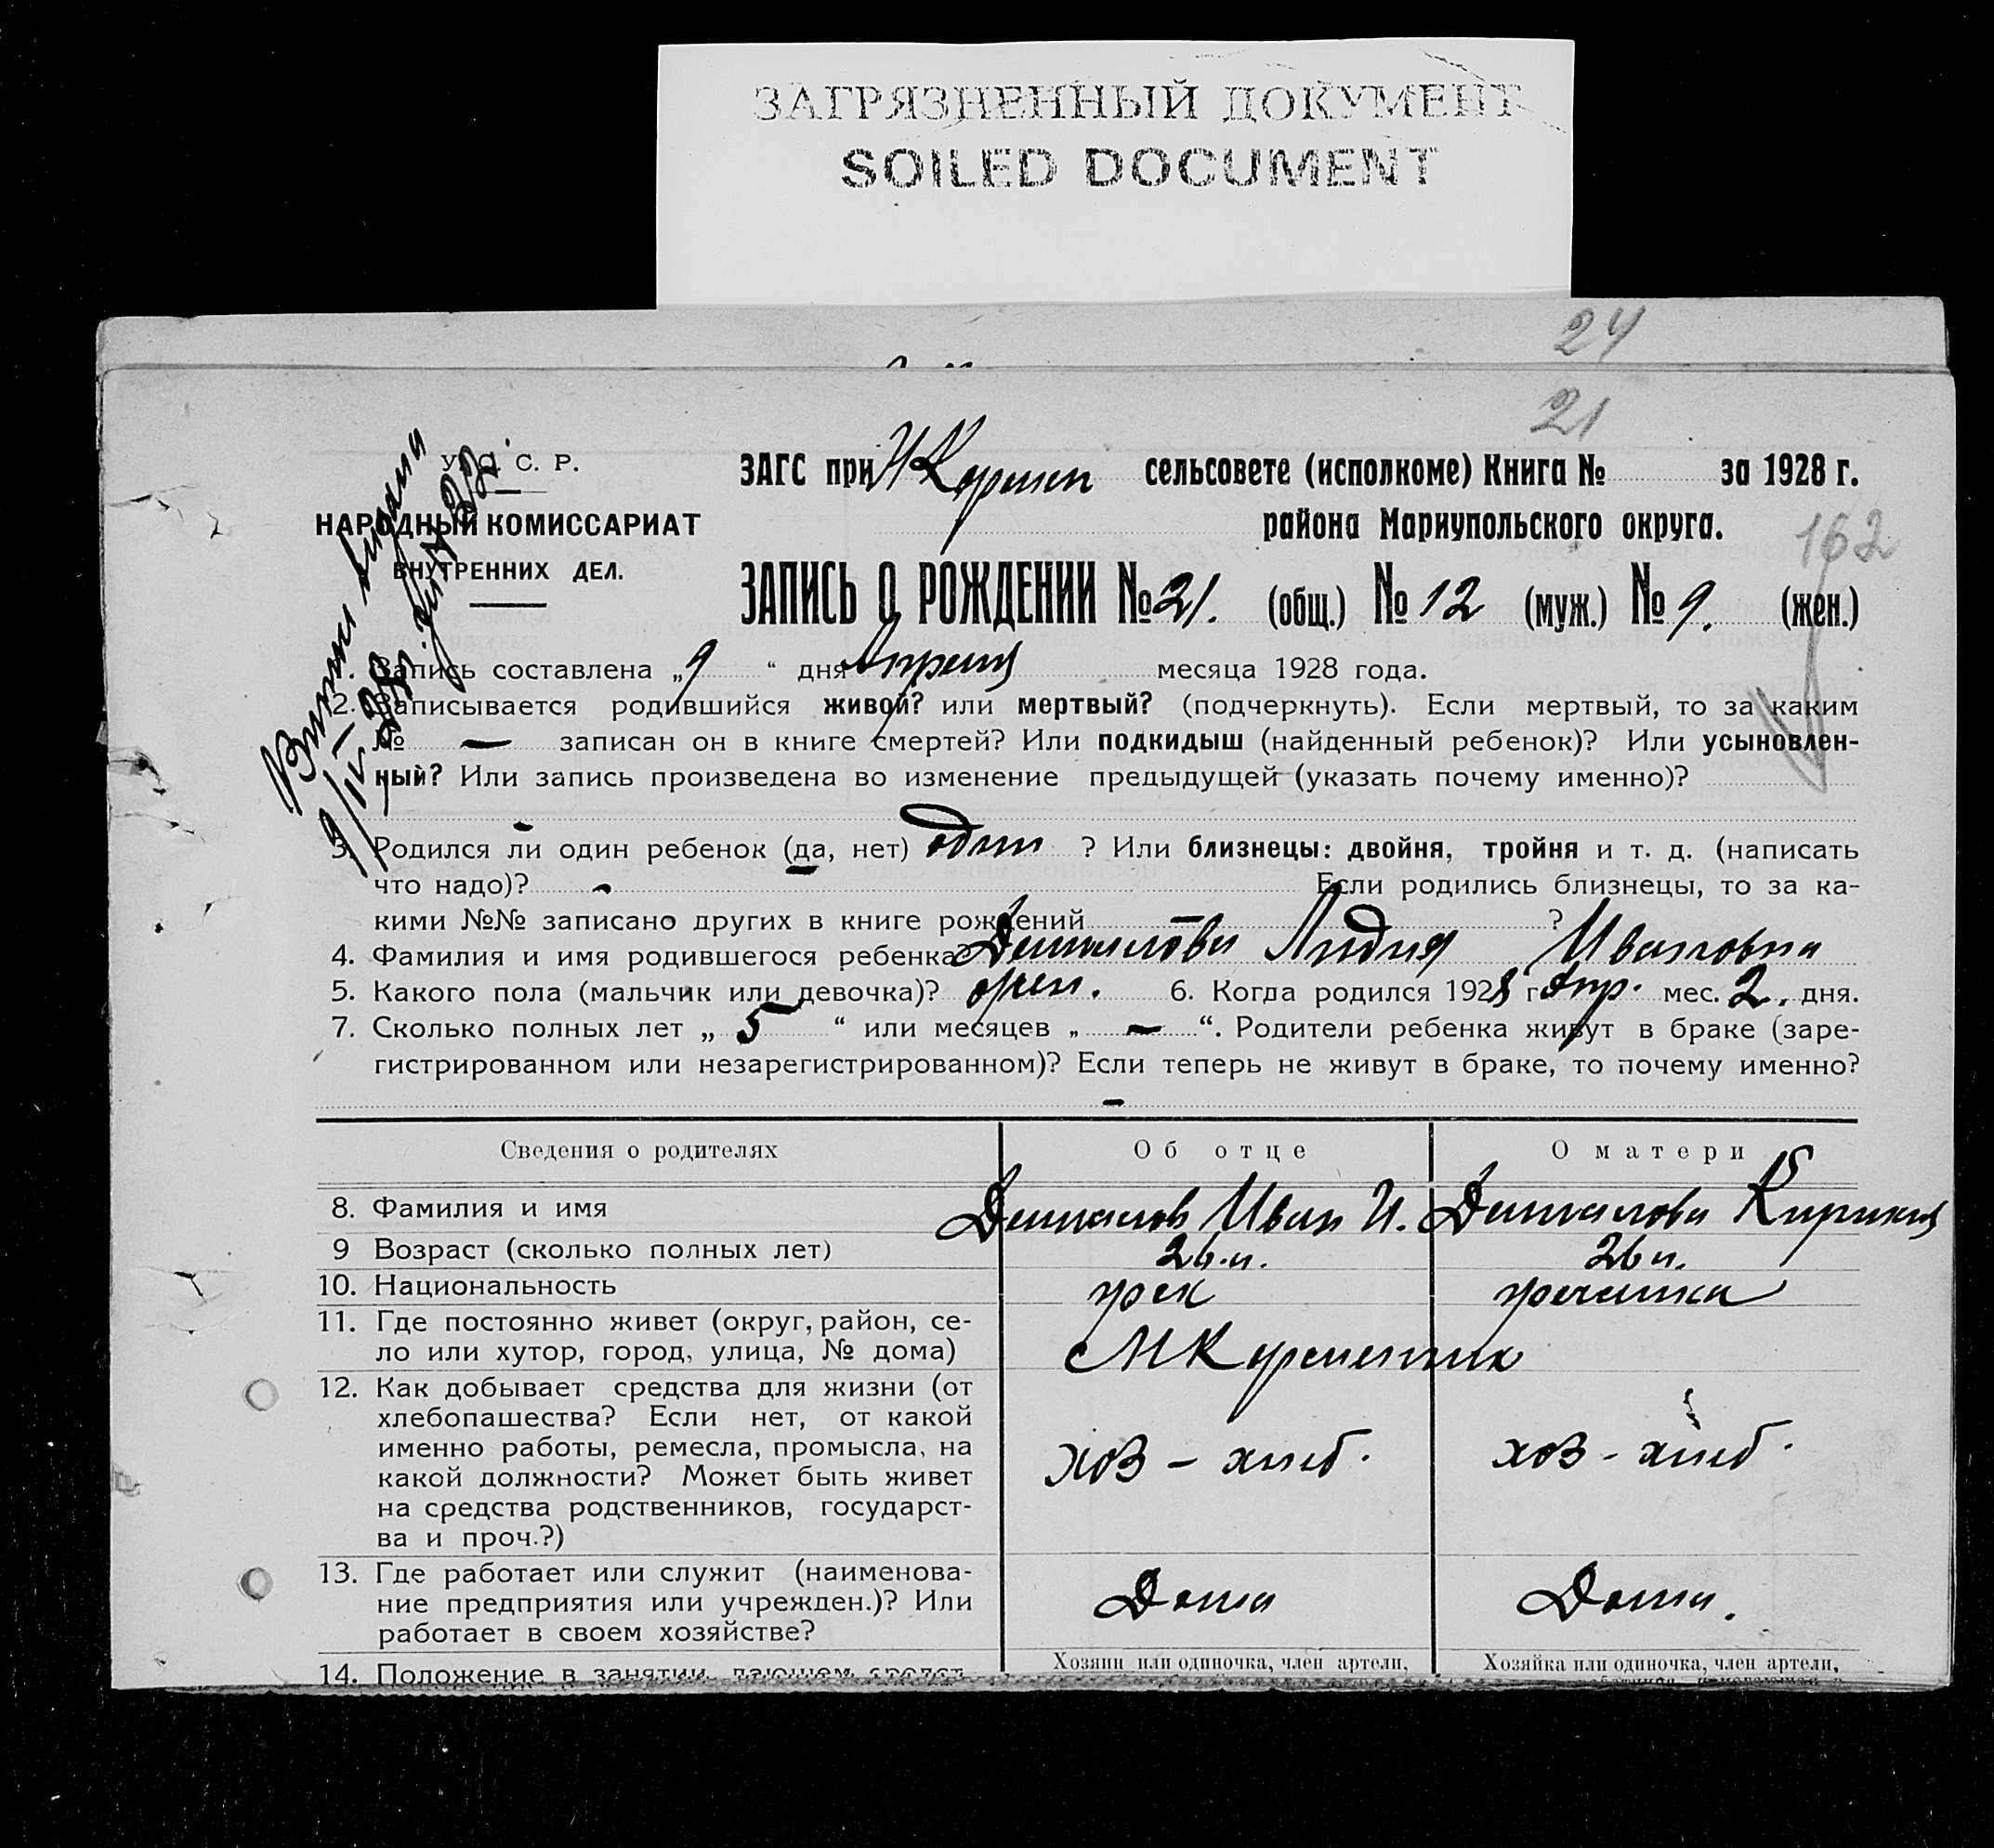 ЗАГРЯЗНЕННЫЙ ДОКУМЕНТ
SOILED DOCUMENT
24
21
У. С. С. Р.
НАРОДНЫЙ КОМИССАРИАТ
ВНУТРЕННИХ ДЕЛ.
ЗАГС при сельсовете (исполкоме) Книга № за 1928 г.
района Мариупольского округа.
162
ЗАПИСЬ О РОЖДЕНИИ № 21. (общ.) № 12 (муж.) № 9. (жен.)
1. Запись составлена „9“ дня Апреля месяца 1928 года.
2. Записывается родившийся живой? или мертвый? (подчеркнуть). Если мертвый, то за каким
№ — записан он в книге смертей? Или подкидыш (найденный ребенок)? Или усыновлен-
ный? Или запись произведена во изменение предыдущей (указать почему именно)?
3. Родился ли один ребенок (да, нет) один ? Или близнецы: двойня, тройня и т. д. (написать
что надо)? - Если родились близнецы, то за ка-
кими №№ записано других в книге рождений — ?
4. Фамилия и имя родившегося ребенка? Лидия Ивановна
5. Какого пола (мальчик или девочка)? жен. 6. Когда родился 1928 г. Апр. мес. 2. дня.
7. Сколько полных лет „ 5 “ или месяцев „ — “. Родители ребенка живут в браке (заре-
гистрированном или незарегистрированном)? Если теперь не живут в браке, то почему именно?
—
Сведения о родителях Об отце О матери
8. Фамилия и имя Иван И.
9 Возраст (сколько полных лет) 26 л. 26 л.
10. Национальность грек гречанка
11. Где постоянно живет (округ, район, се-
ло или хутор, город, улица, № дома)
12. Как добывает средства для жизни (от
хлебопашества? Если нет, от какой
именно работы, ремесла, промысла, на
какой должности? Может быть живет
на средства родственников, государст-
ва и проч.?)
хоз - хлеб. хоз - хлеб.
13. Где работает или служит (наименова-
ние предприятия или учрежден.)? Или
работает в своем хозяйстве?
Дома Дома.
14. Положение в занятии, дающем средст
Хозяин или одиночка, член артели, Хозяйка или одиночка, член артели,